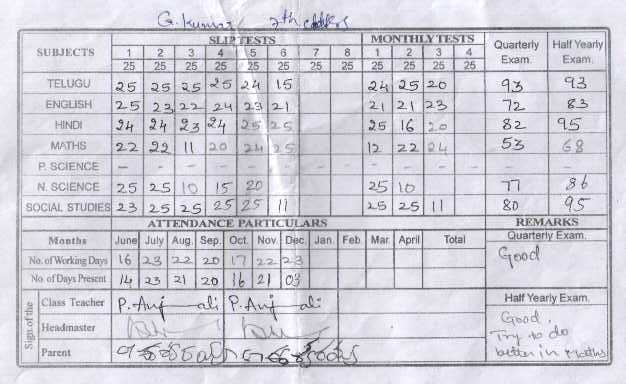 G. Kumar 7th class
SUBJECTS SLIP TESTS MONTHLY TESTS Quarterly Exam. Half Yearly Exam.
1 2 3 4 5 6 7 8 1 2 3 4
25 25 25 25 25 25 25 25 25 25 25 25
TELUGU 25 25 25 25 24 15 24 25 20 93 93
ENGLISH 25 23 22 24 23 21 21 21 23 72 83
HINDI 24 24 23 24 25 25 25 16 20 82 95
MATHS 22 22 11 20 24 25 12 22 24 53 68
P. SCIENCE - - - - - - - - - - - - - -
N. SCIENCE 25 25 10 15 20 25 10 77 86
SOCIAL STUDIES 23 25 25 25 25 11 25 25 11 80 95
ATTENDANCE PARTICULARS REMARKS
Months June July Aug. Sep. Oct. Nov. Dec. Jan. Feb. Mar. April Total Quarterly Exam.
No. of Working Days 16 23 22 20 17 22 23 Good
No. of Days Present 14 23 21 20 16 21 03
Sign.of the Class Teacher P. Anjali P. Anjali Half Yearly Exam.
Headmaster Good.
Try to do
Parent better in Maths